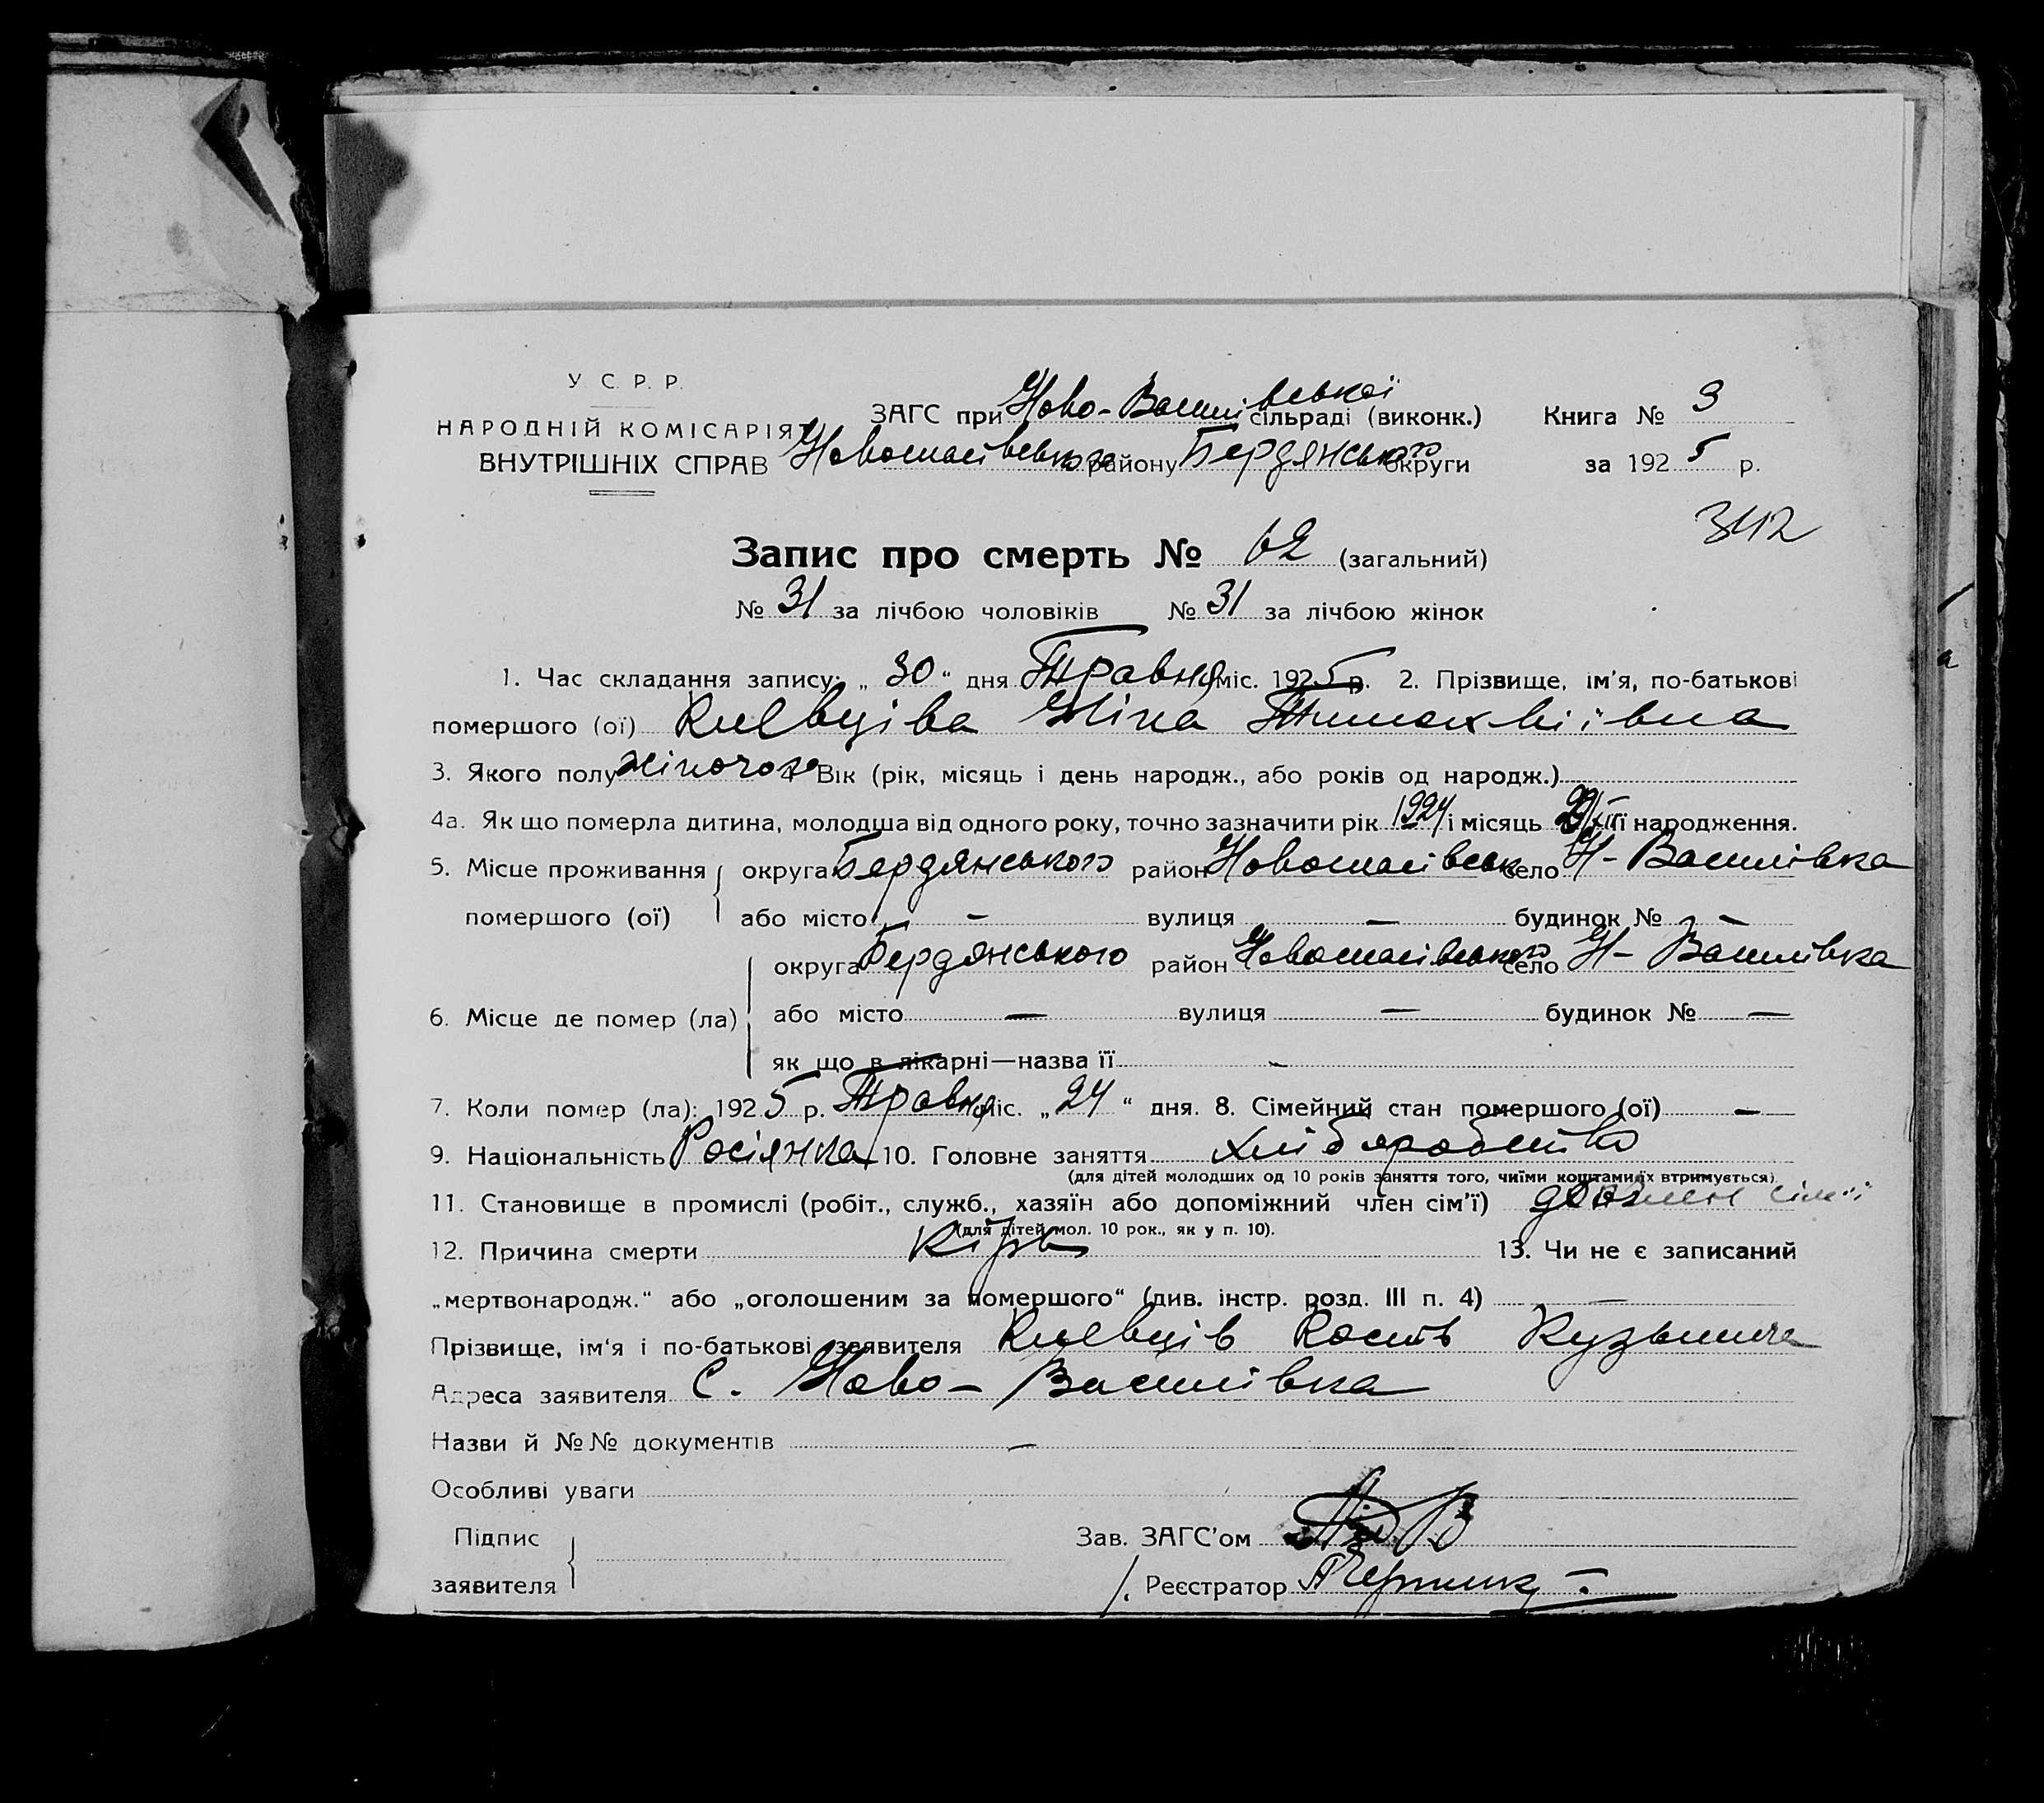 У. С. Р. Р.
НАРОДНІЙ КОМІСАРІЯТ
ВНУТРІШНІХ СПРАВ
ЗАГС при Ново-Василівської сільраді (виконк.)
району Бердянського округи
Книга № 3
за 1925 р.
342
Запис про смерть № 62 (загальний)
№ 31 за лічбою чоловіків № 31 за лічбою жінок
1. Час складання запису: „ 30 “ дня Травня міс. 1925 р. 2. Прізвище, ім'я, по-батькові
помершого (ої) Киевціва Ніна
3. Якого полу жіночого 4. Вік (рік, місяць і день народж., або років од народж.)
4а. Як що померла дитина, молодша від одного року, точно зазначити рік 1924 і місяць її народження.
5. Місце проживання округа Бердянського район село Н-Василівка
помершого (ої) або місто – вулиця – будинок № –
округа Бердянського район село Н-Василівка
6. Місце де помер (ла) або місто — вулиця — будинок № —
як що в лікарні—назва її -
7. Коли помер (ла): 1925 р. Травня міс. „ 24 “ дня. 8. Сімейний стан помершого (ої) –
9. Національність Росіянка 10. Головне заняття хліборобство
(для дітей молодших од 10 років заняття того, чиїми коштами їх втримується)
11. Становище в промислі (робіт., служб., хазяїн або допоміжний член сім'ї) сім'ї
(для дітей мол. 10 рок., як у п. 10).
12. Причина смерти Кір 13. Чи не є записаний
„мертвонародж.“ або „оголошеним за помершого“ (див. інстр. розд. III п. 4) —
Прізвище, ім'я і по-батькові заявителя Киевців Кость Кузьмич
Адреса заявителя С. Ново-Василівка
Назви й №№ документів –
Особливі уваги
Підпис
заявителя
Зав. ЗАГС'ом
Реєстратор